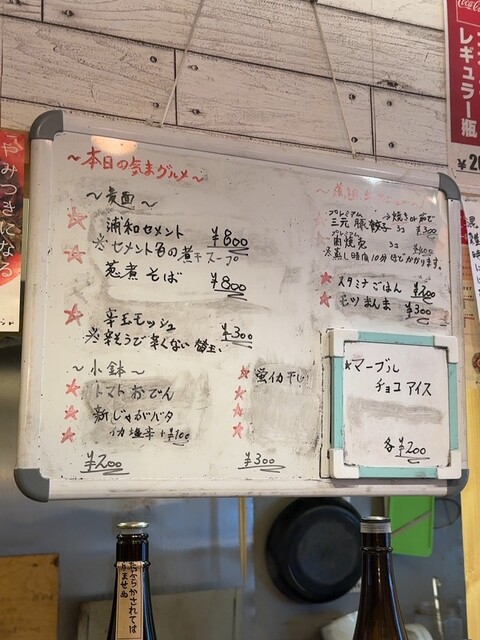 ~本日の気まグルメ~
~麦面~
浦和セメント ¥800
※セメント色の煮干スープ
葱煮そば ¥800
辛王モッシュ ¥300
※辛そうで辛くない替玉
~小鉢~
トマトおでん
新じゃがバタ
イカ塩辛+¥100
¥200
蛍イカ干し
¥300
プレミアム
三元豚餃子 3コ ¥300
プレミアム
焼売 3コ
※蒸し時間10分ほどかかります。
スタミナごはん ¥200
モツまんま ¥300
マーブル
チョコアイス
各¥200
レギュラー瓶
やみつきになる